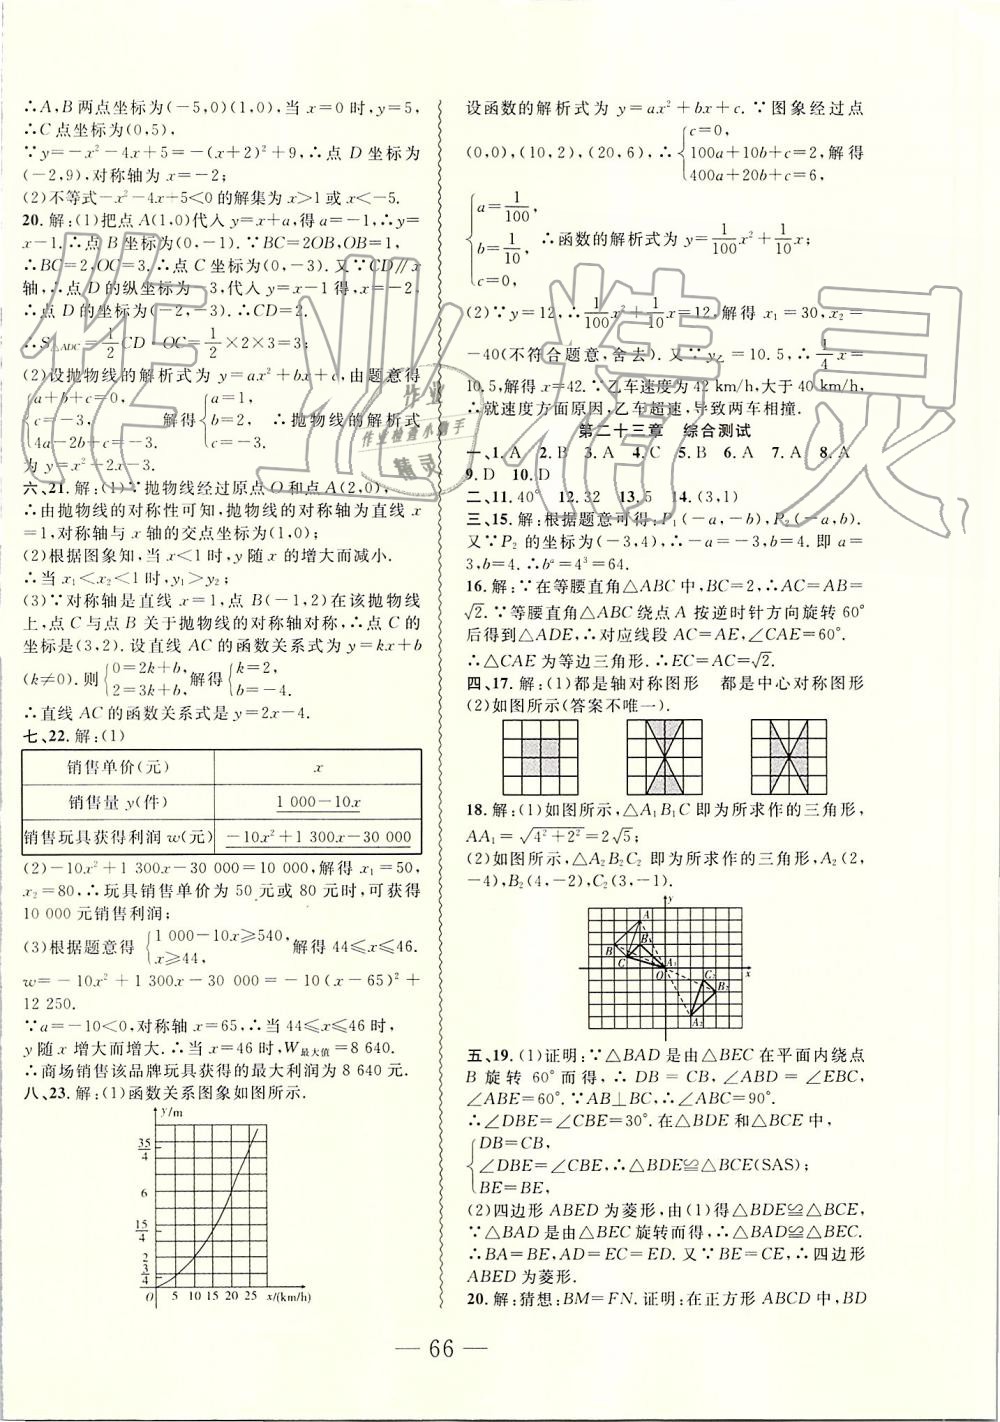 ∴A,B两点坐标为(-5,0)(1,0),当x=0时,y=5,
∴C点坐标为(0,5),
∵y=-x²-4x+5=-(x+2)²+9,∴点D坐标为
(-2,9),对称轴为x=-2;
(2)不等式-x²-4x+5<0的解集为x>1或x<-5.
20.解:(1)把点A(1,0)代入y=x+a,得a=-1,∴y=
x-1.∴点B坐标为(0,-1).∵BC=2OB,OB=1,
∴BC=2,OC=3.∴点C坐标为(0,-3).又∵CD∥x
轴,∴点D的纵坐标为-3,代入y=x-1得,x=-2,
∴点D的坐标为(-2,-3).∴CD=2.
∴S△ADC=1/2CD·OC=1/2×2×3=3.
(2)设抛物线的解析式为y=ax²+bx+c,由题意得
{a+b+c=0, c=-3, 4a-2b+c=-3, 解得{a=1, b=2, c=-3. ∴抛物线的解析式
为y=x²+2x-3.
六、21.解:(1)∵抛物线经过原点O和点A(2,0),
∴由抛物线的对称性可知,抛物线的对称轴为直线x
=1,对称轴与x轴的交点坐标为(1,0);
(2)根据图象知,当x<1时,y随x的增大而减小.
∴当x₁<x₂<1时,y₁>y₂;
(3)∵对称轴是直线x=1,点B(-1,2)在该抛物线
上,点C与点B关于抛物线的对称轴对称,∴点C的
坐标是(3,2).设直线AC的函数关系式为y=kx+b
(k≠0).则{0=2k+b, 2=3k+b, 解得{k=2, b=-4.
∴直线AC的函数关系式是y=2x-4.
七、22.解:(1)
销售单价(元) x
销售量y(件) 1 000-10x
销售玩具获得利润w(元) -10x²+1 300x-30 000
(2)-10x²+1 300x-30 000=10 000,解得x₁=50,
x₂=80,∴玩具销售单价为50元或80元时,可获得
10 000元销售利润;
(3)根据题意得{1 000-10x≥540, x≥44, 解得44≤x≤46.
w=-10x²+1 300x-30 000=-10(x-65)²+
12 250.
∵a=-10<0,对称轴x=65,∴当44≤x≤46时,
y随x增大而增大.∴当x=46时,W最大值=8 640.
∴商场销售该品牌玩具获得的最大利润为8 640元.
八、23.解:(1)函数关系图象如图所示.
y/m
35/4
6
15/4
2
3/4
O 5 10 15 20 25 x/(km/h)
设函数的解析式为y=ax²+bx+c.∵图象经过点
(0,0),(10,2),(20,6),∴{c=0, 100a+10b+c=2, 400a+20b+c=6, 解得
{a=1/100, b=1/10, c=0. ∴函数的解析式为y=1/100x²+1/10x;
(2)∵y=12,∴1/100x²+1/10x=12,解得x₁=30,x₂=
-40(不符合题意,舍去).又∵y乙=10.5,∴1/4x=
10.5,解得x=42.∵乙车速度为42 km/h,大于40 km/h,
∴就速度方面原因,乙车超速,导致两车相撞.
第二十三章 综合测试
一、1.A 2.B 3.A 4.C 5.B 6.A 7.A 8.A
9.D 10.D
二、11.40° 12.32 13.5 14.(3,1)
三、15.解:根据题意可得:P₁(-a,-b),P₂(-a,b).
又∵P₂的坐标为(-3,4),∴a=3,b=4.即a=
3,b=4.∴bᵃ=4³=64.
16.解:∵在等腰直角△ABC中,BC=2,∴AC=AB=
√2.∵等腰直角△ABC绕点A按逆时针方向旋转60°
后得到△ADE,∴对应线段AC=AE,∠CAE=60°.
∴△CAE为等边三角形.∴EC=AC=√2.
四、17.解:(1)都是轴对称图形 都是中心对称图形
(2)如图所示(答案不唯一).
18.解:(1)如图所示,△A₁B₁C即为所求作的三角形,
AA₁=√(4²+2²)=2√5;
(2)如图所示,△A₂B₂C₂即为所求作的三角形,A₂(2,
-4),B₂(4,-2),C₂(3,-1).
y
A
B B₁
C A₁
O x
C₂
B₂
A₂
五、19.(1)证明:∵△BAD是由△BEC在平面内绕点
B旋转60°而得,∴DB=CB,∠ABD=∠EBC,
∠ABE=60°.∵AB⊥BC,∴∠ABC=90°.
∴∠DBE=∠CBE=30°.在△BDE和△BCE中,
{DB=CB,
∠DBE=∠CBE,∴△BDE≌△BCE(SAS);
BE=BE,
(2)四边形ABED为菱形,由(1)得△BDE≌△BCE,
∵△BAD是由△BEC旋转而得,∴△BAD≌△BEC.
∴BA=BE,AD=EC=ED.又∵BE=CE,∴四边形
ABED为菱形.
20.解:猜想:BM=FN.证明:在正方形ABCD中,BD
— 66 —
作业精灵
作业
作业检查小帮手
精灵